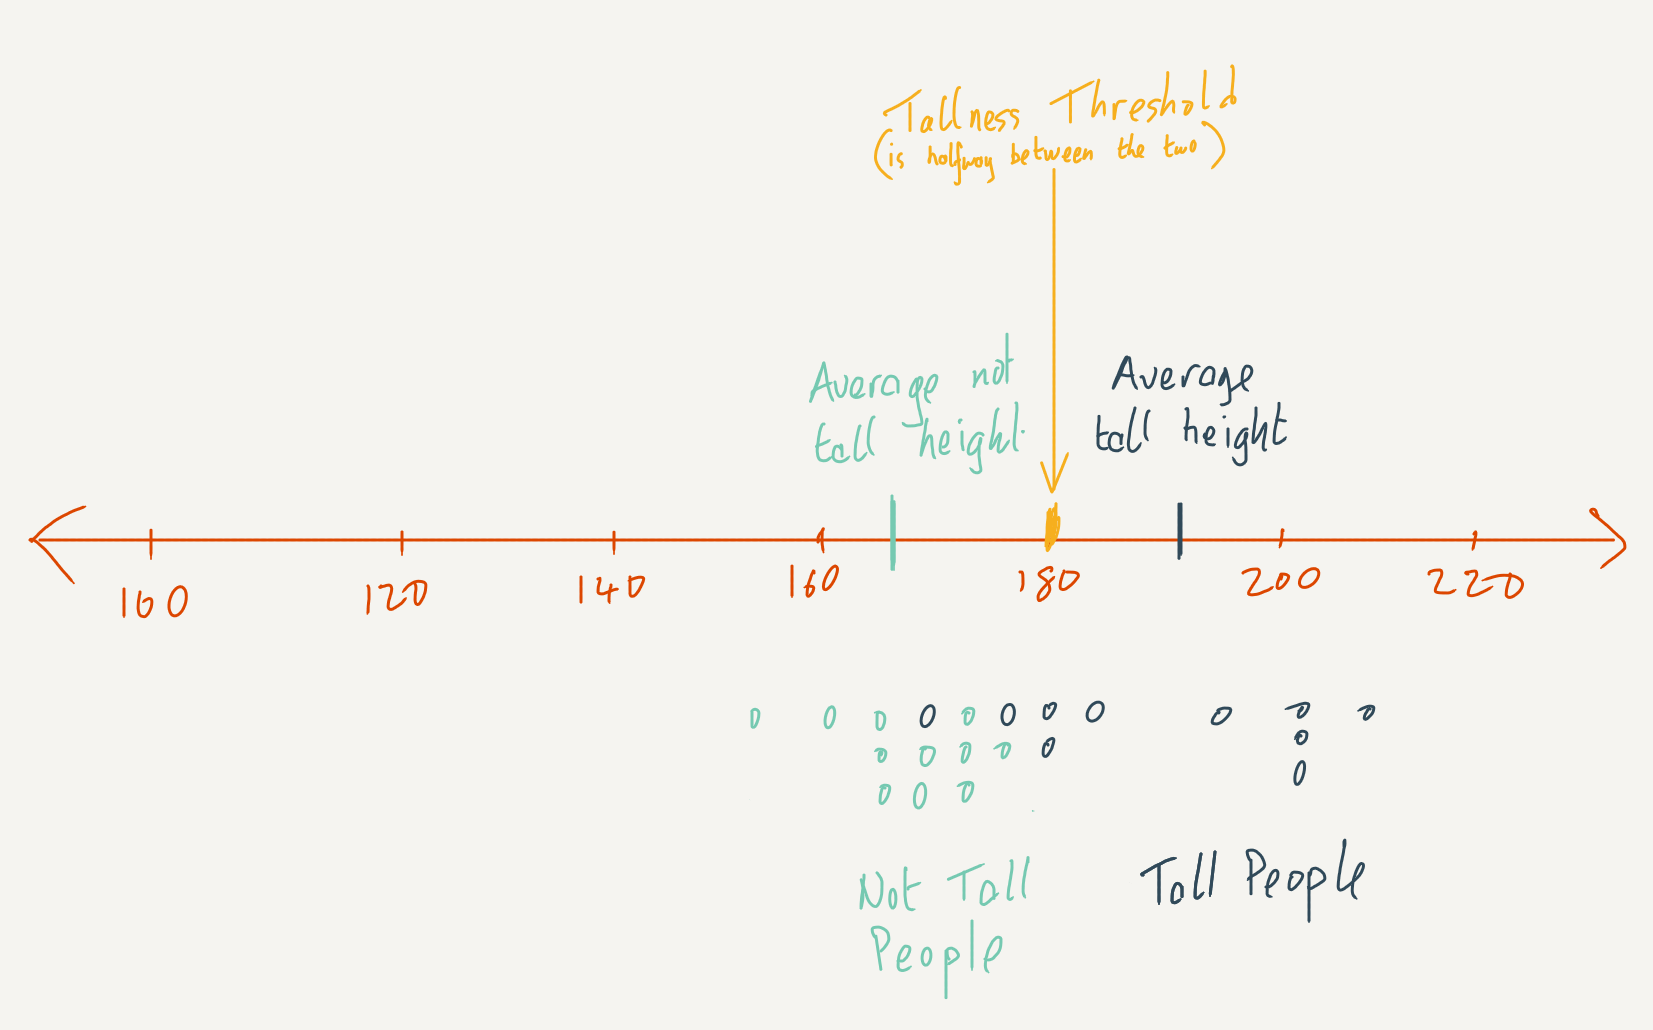 Tallness Threshold
(is halfway between the two)
Average not
tall height
Average
tall height
100 120 140 160 180 200 220
Not Tall
People
Tall People